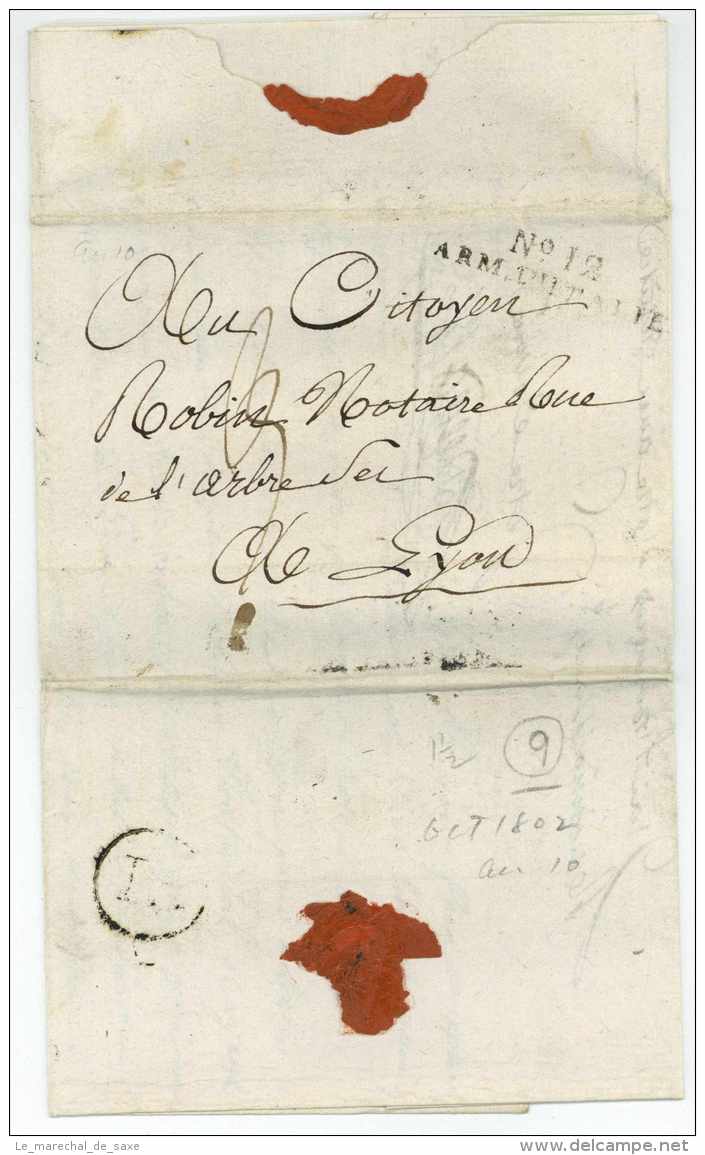 an 10
No 12
ARM. D'ITALIE
Au Citoyen
Robin Notaire Rue
de l'arbre sec
A Lyon
9
OCT 1802
an 10
Le_marechal_de_saxe
delcampe.net